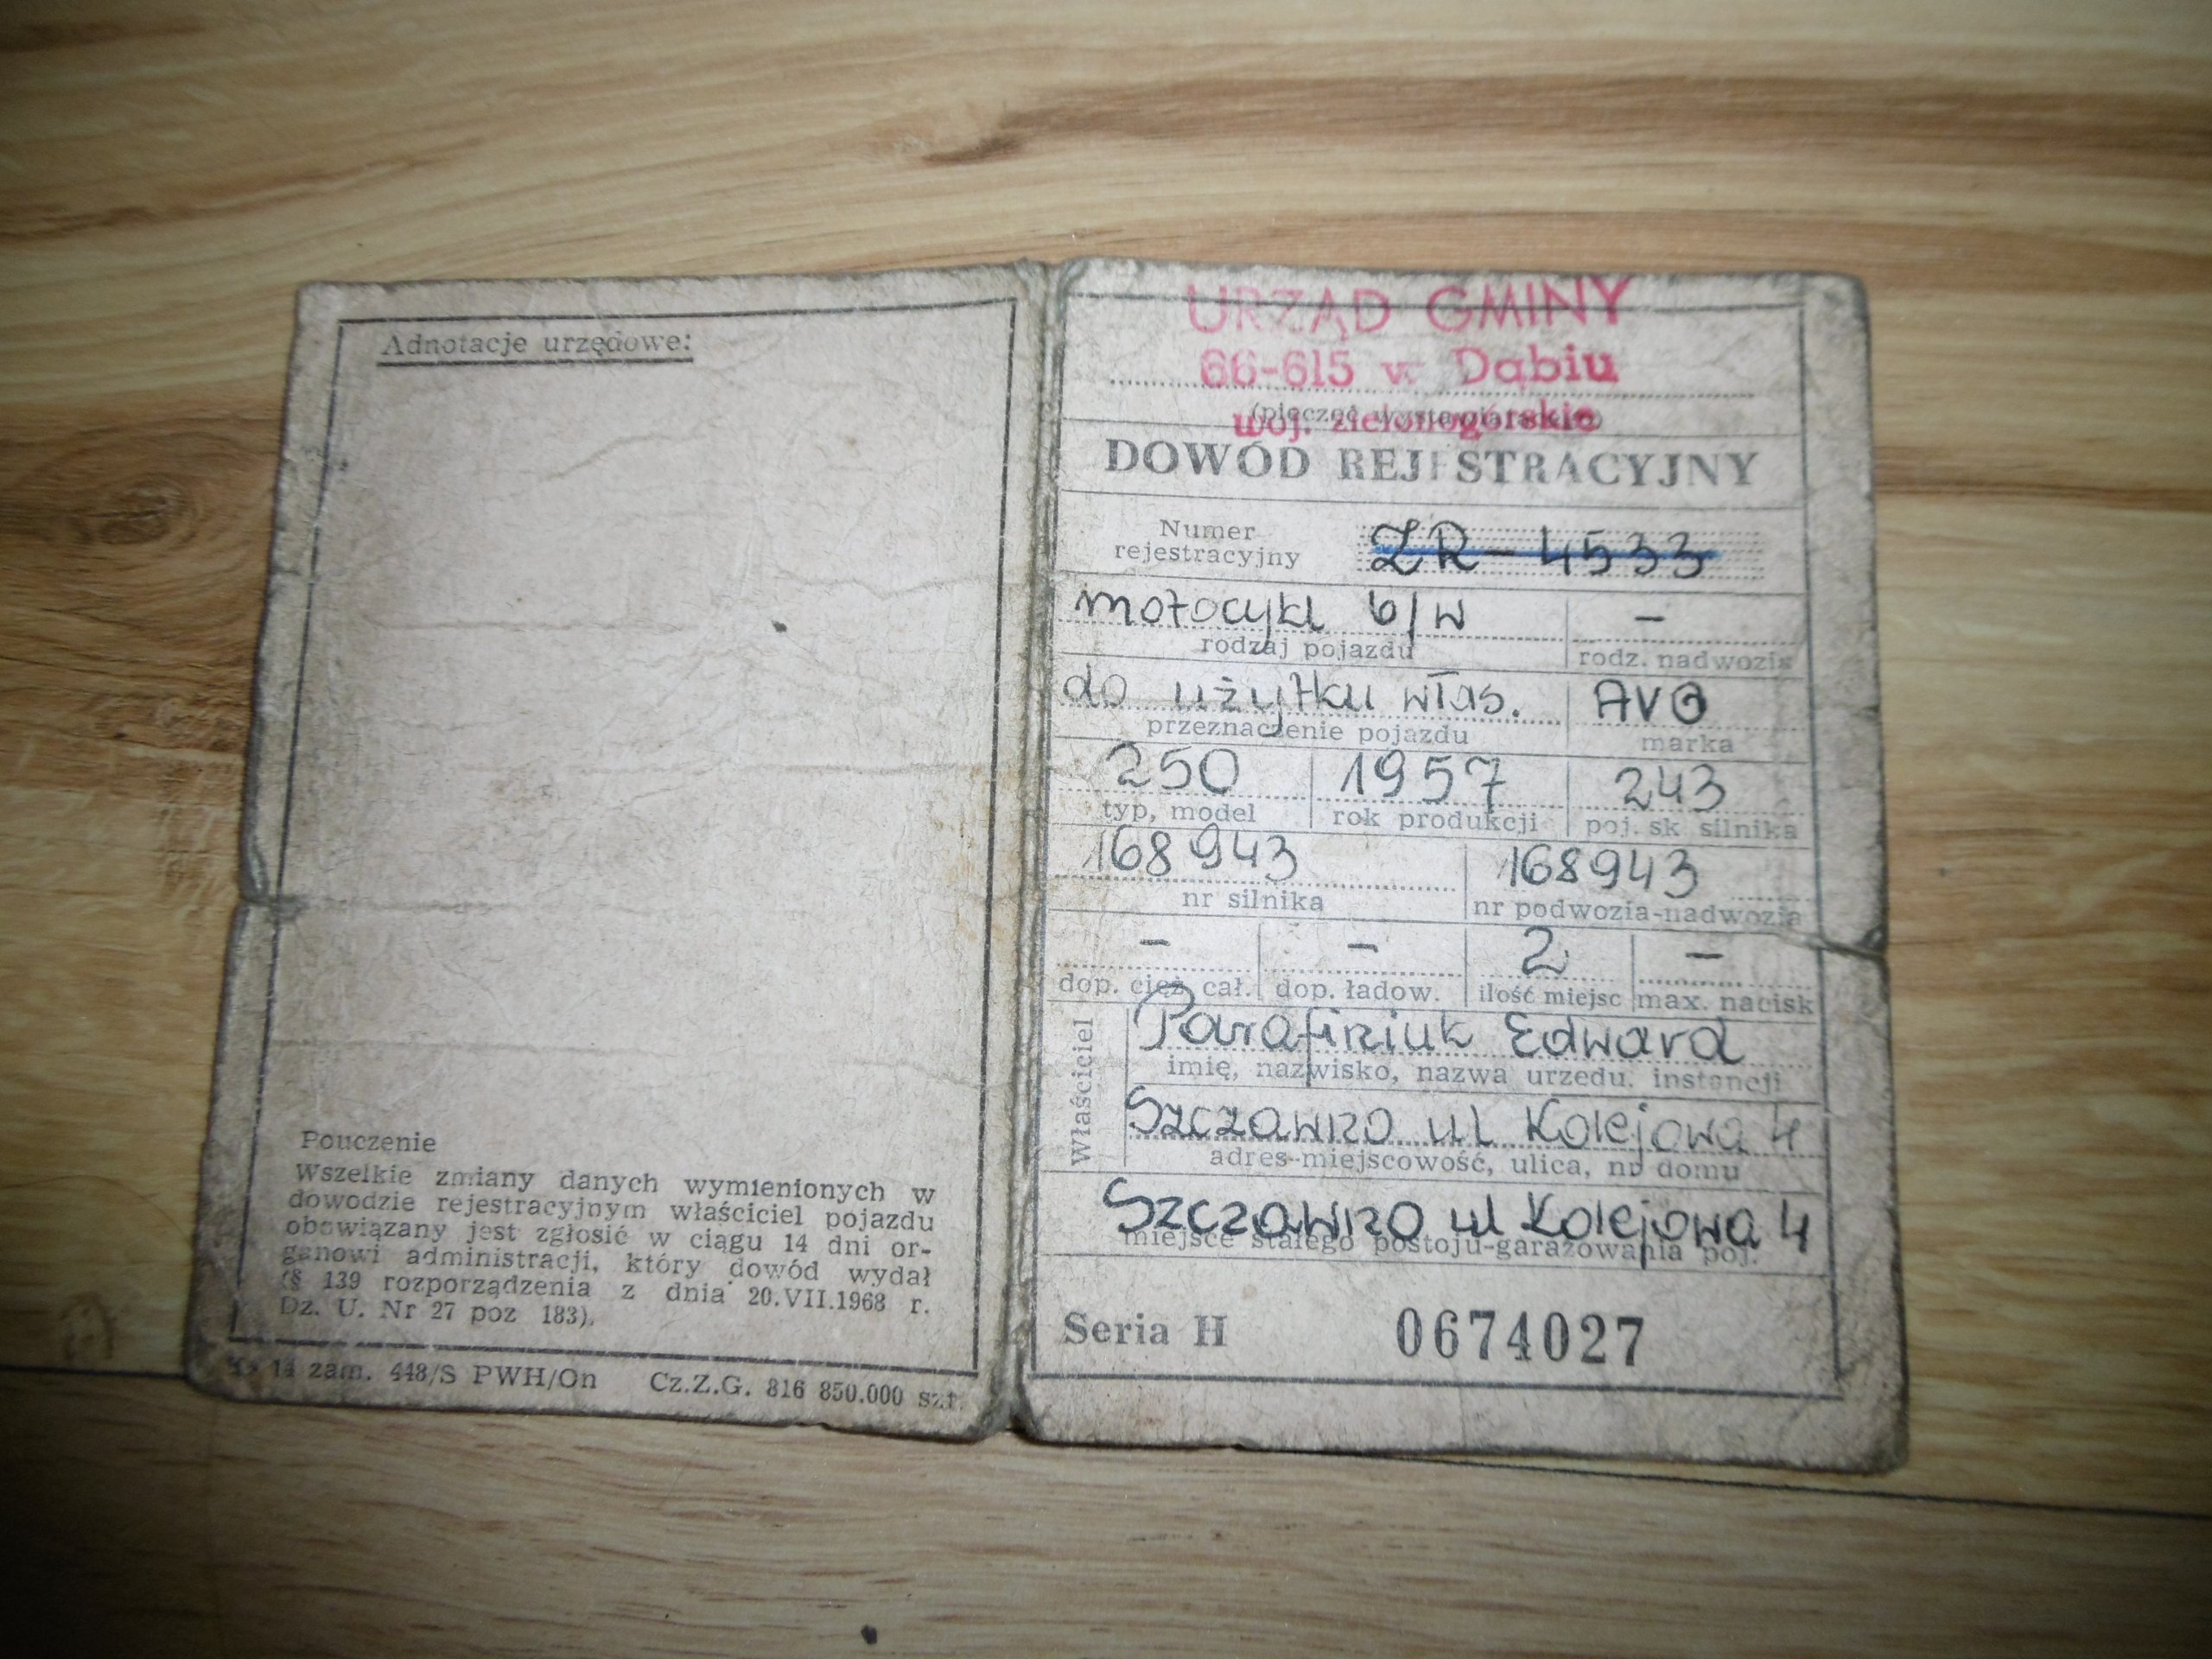 Adnotacje urzędowe:
Pouczenie
Wszelkie zmiany danych wymienionych w
dowodzie rejestracyjnym właściciel pojazdu
obowiązany jest zgłosić w ciągu 14 dni or-
ganowi administracji, który dowód wydał
(§ 139 rozporządzenia z dnia 20.VII.1968 r.
Dz. U. Nr 27 poz 183).
14 zam. 448/S PWH/On Cz.Z.G. 816 850.000 szt.
URZĄD GMINY
66-615 w Dąbiu
woj. zielonogórskie
DOWÓD REJESTRACYJNY
Numer
rejestracyjny ZR-4533
motocykl b/w -
rodzaj pojazdu rodz. nadwozia
do użytku włas. AVO
przeznaczenie pojazdu marka
250 1957 243
typ, model rok produkcji poj. sk silnika
168943 168943
nr silnika nr podwozia-nadwozia
- - 2 -
dop. cięż cał. dop. ładow. ilość miejsc max. nacisk
Właściciel
Parafiniuk Edward
imię, nazwisko, nazwa urzędu. instancji
Szczawno ul Kolejowa 4
adres-miejscowość, ulica, nr domu
Szczawno ul Kolejowa 4
miejsce stałego postoju-garażowania poj.
Seria H 0674027